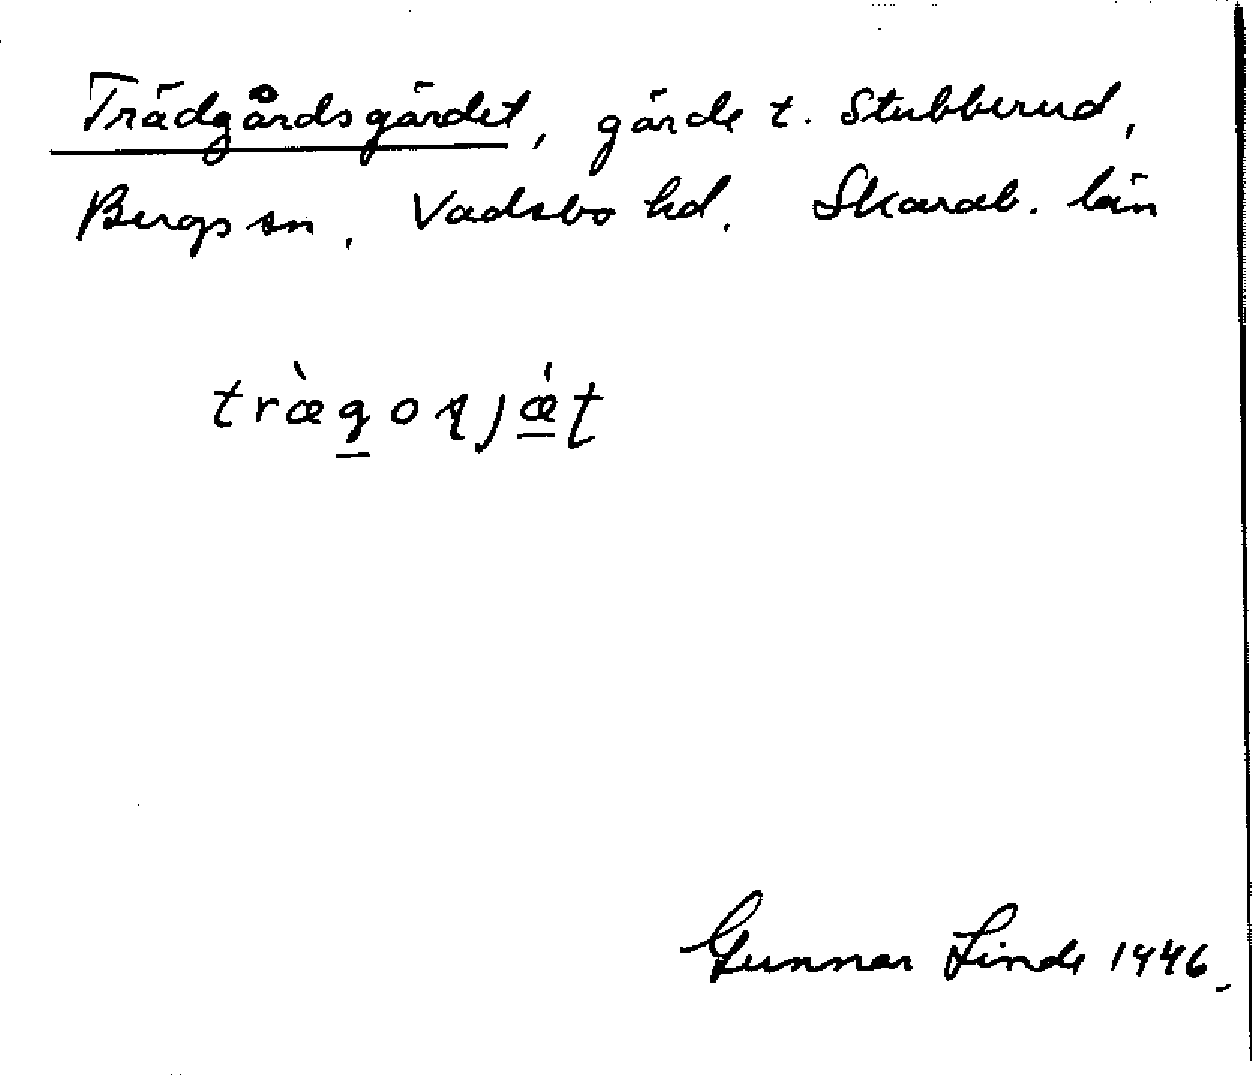 Trädgårdsgärdet, gärde t. Stubberud,
Bergs sn, Vadsbo hd, Skarab. län
Gunnar Linde 1946.